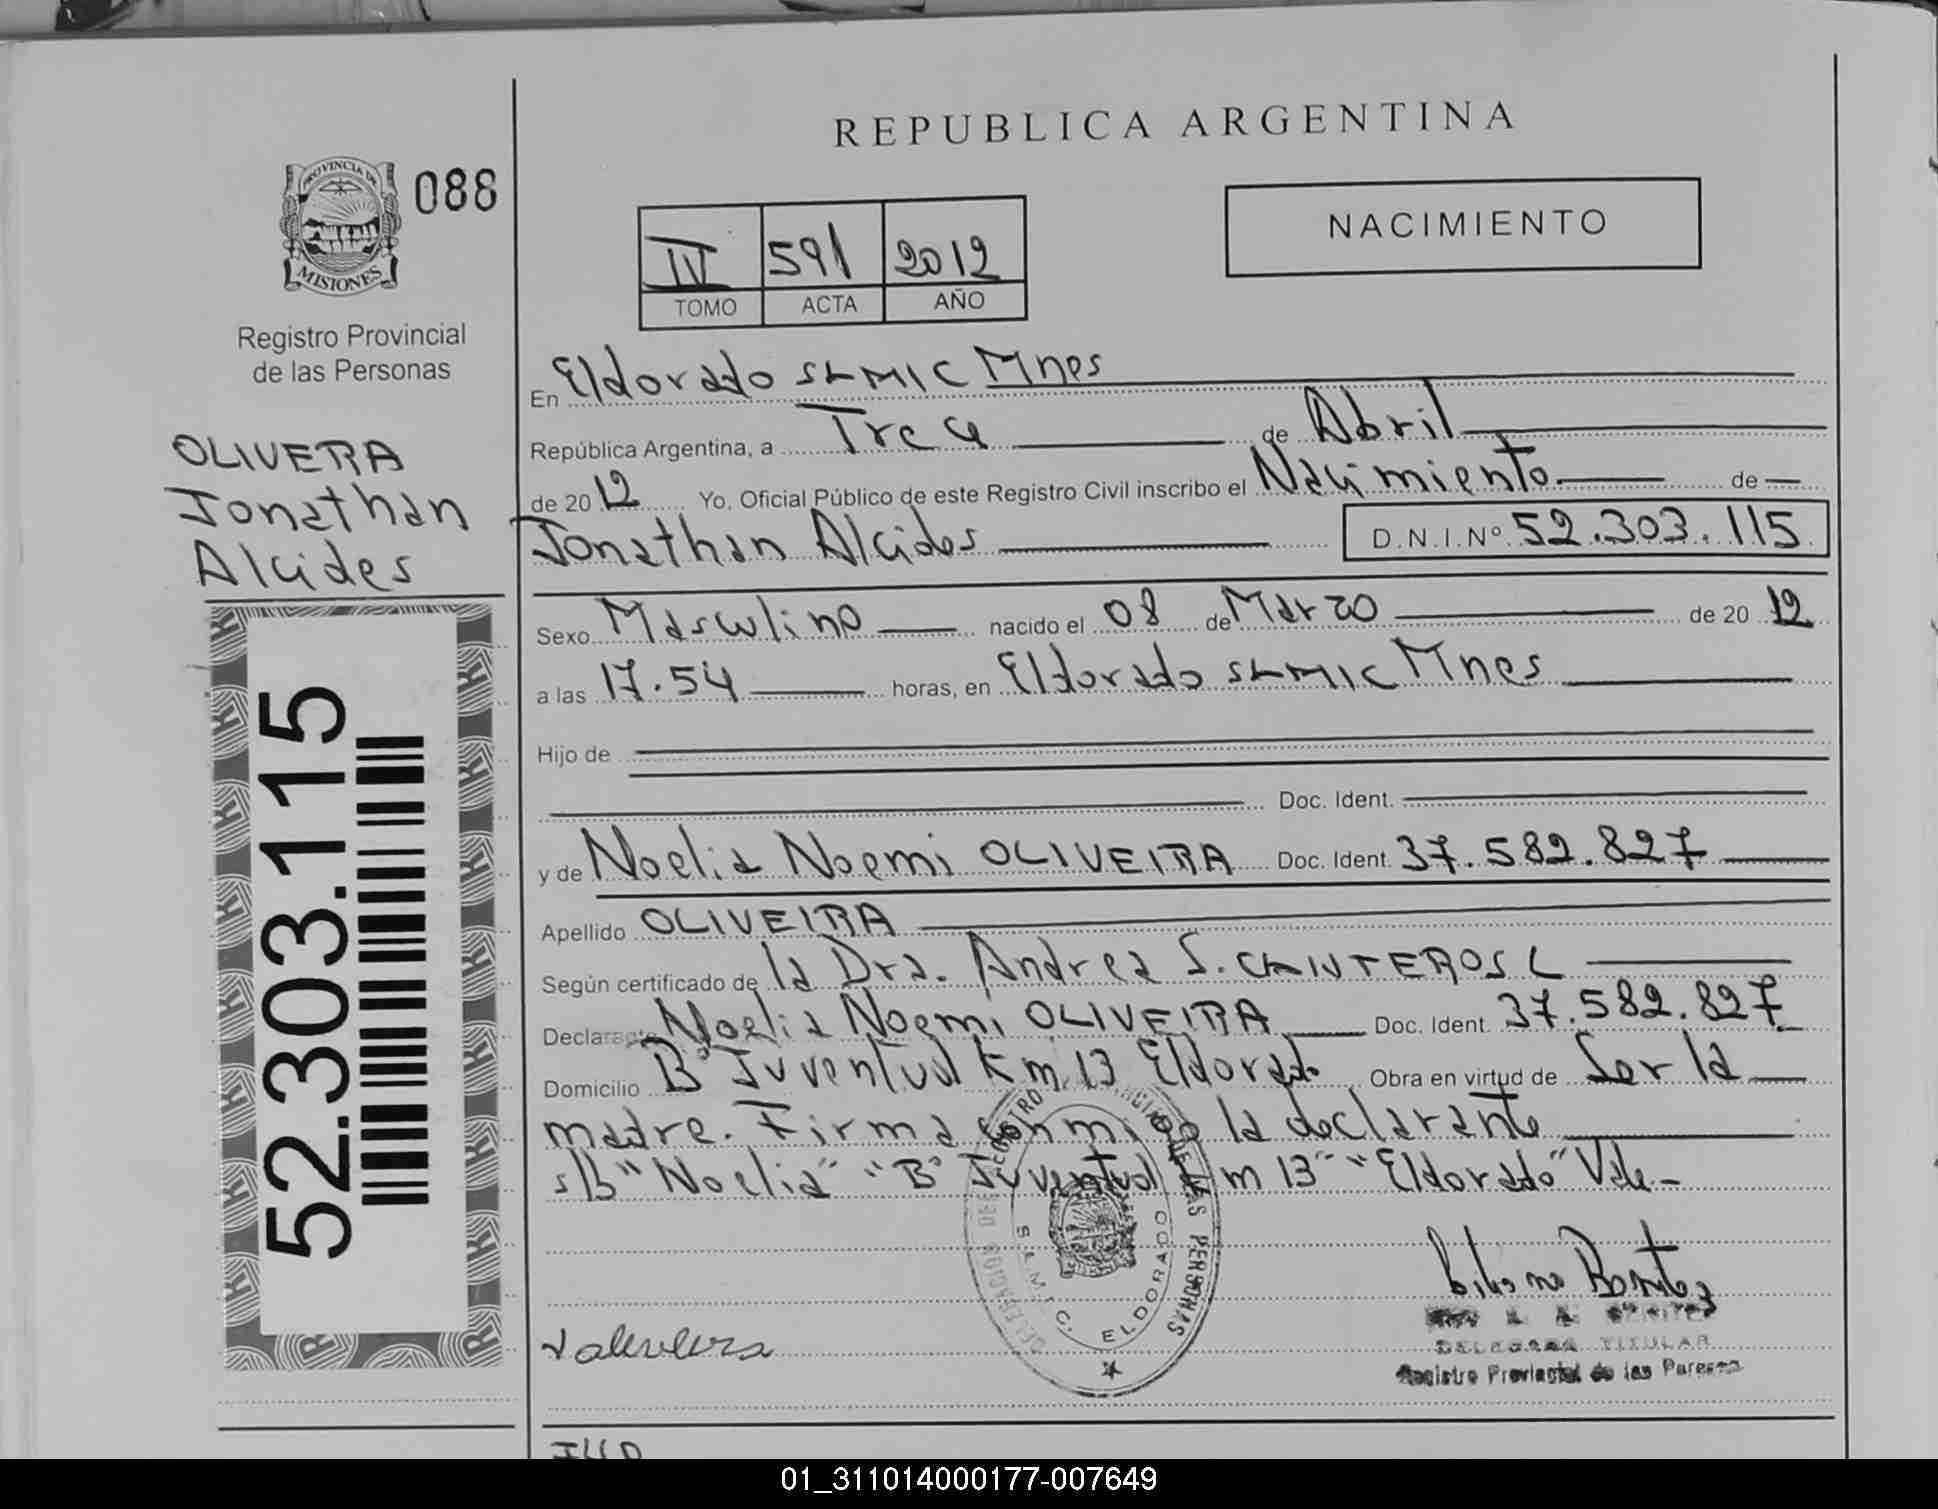 REPUBLICA ARGENTINA
PROVINCIA DE
MISIONES
088
Registro Provincial
de las Personas
OLIVERA
Jonathan
Alcides
52.303.115
IV 591 2012
TOMO ACTA AÑO
NACIMIENTO
En Eldorado SLMIC Mnes
República Argentina, a Tres de Abril
de 2012 Yo, Oficial Público de este Registro Civil inscribo el Nacimiento de
Jonathan Alcides D.N.I.Nº 52.303.115
Sexo Masculino nacido el 08 de Marzo de 2012
a las 17.54 horas, en Eldorado SLMIC Mnes
Hijo de
Doc. Ident.
y de Noelia Noemi OLIVEIRA Doc. Ident. 37.582.827
Apellido OLIVEIRA
Según certificado de la Dra. Andrea S. CANTEROS L
Declarante Noelia Noemi OLIVEIRA Doc. Ident. 37.582.827
Domicilio Bº Juventud Km 13 Eldorado Obra en virtud de Ser la
madre. Firma conmigo la declarante
s/b "Noelia" "Bº Juventud Km 13" "Eldorado" Vale
REGISTRO PROVINCIAL DE LAS PERSONAS
ELDORADO
BENITEZ
DELEGADA TITULAR
Registro Provincial de las Personas
01_311014000177-007649